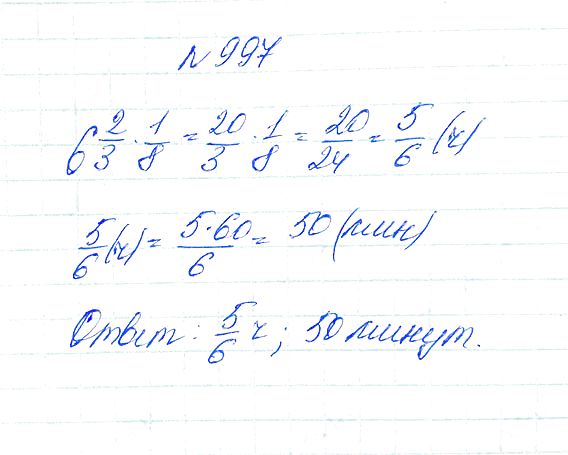 №997
6 2/3 · 1/8 = 20/3 · 1/8 = 20/24 = 5/6 (ч)
5/6 (ч) = 5·60/6 = 50 (мин)
Ответ: 5/6 ч; 50 минут.